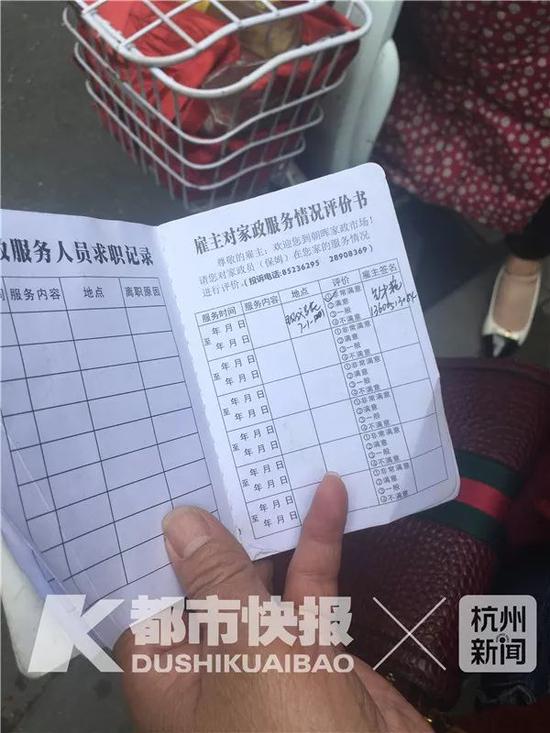 政服务人员求职记录
间 服务内容 地点 离职原因
雇主对家政服务情况评价书
尊敬的雇主：欢迎您到朝晖家政市场！
请您对家政员（保姆）在您家的服务情况
进行评价。(投诉电话:85236295 28908369)
服务时间 服务内容 地点 评价 雇主签名
年 月 日
至 年 月 日
①非常满意
②满意
③一般
④不满意
年 月 日
至 年 月 日
①非常满意
②满意
③一般
④不满意
年 月 日
至 年 月 日
①非常满意
②满意
③一般
④不满意
年 月 日
至 年 月 日
①非常满意
②满意
③一般
④不满意
年 月 日
至 年 月 日
①非常满意
②满意
③一般
④不满意
都市快报
DUSHIKUAIBAO
杭州
新闻